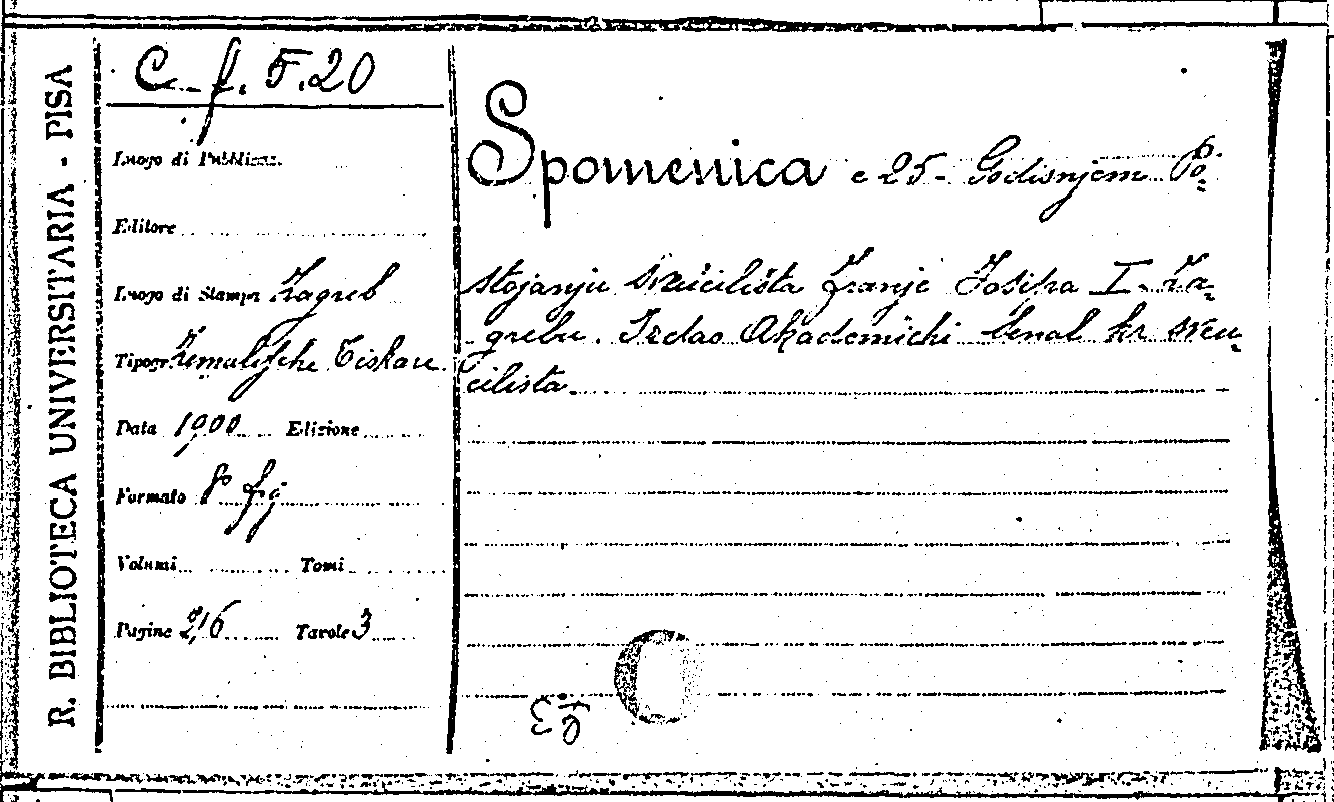 R. BIBLIOTECA UNIVERSITARIA - PISA
C. f. 5.20
Luogo di Pubblicaz.
Editore
Luogo di Stampa Zagreb
Tipogr. Zemaljsche Tiskare
Data 1900 Edizione
Formato 8° fig
Volumi Tomi
Pagine 216 Tavole 3
Spomenica e 25- Godisnjem Po=
stojanju Sveučilišta Franje Josipa I. Za=
grebu. Izdao Akademichi Senat kr sveu=
cilista.